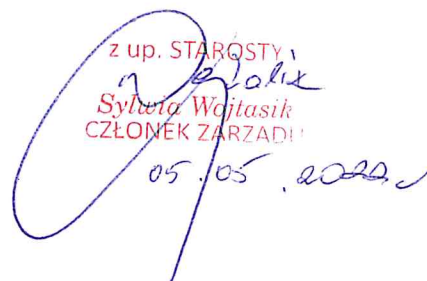 z up. STAROSTY
Sylwia Wojtasik
CZŁONEK ZARZĄDU
05.05.2022 r